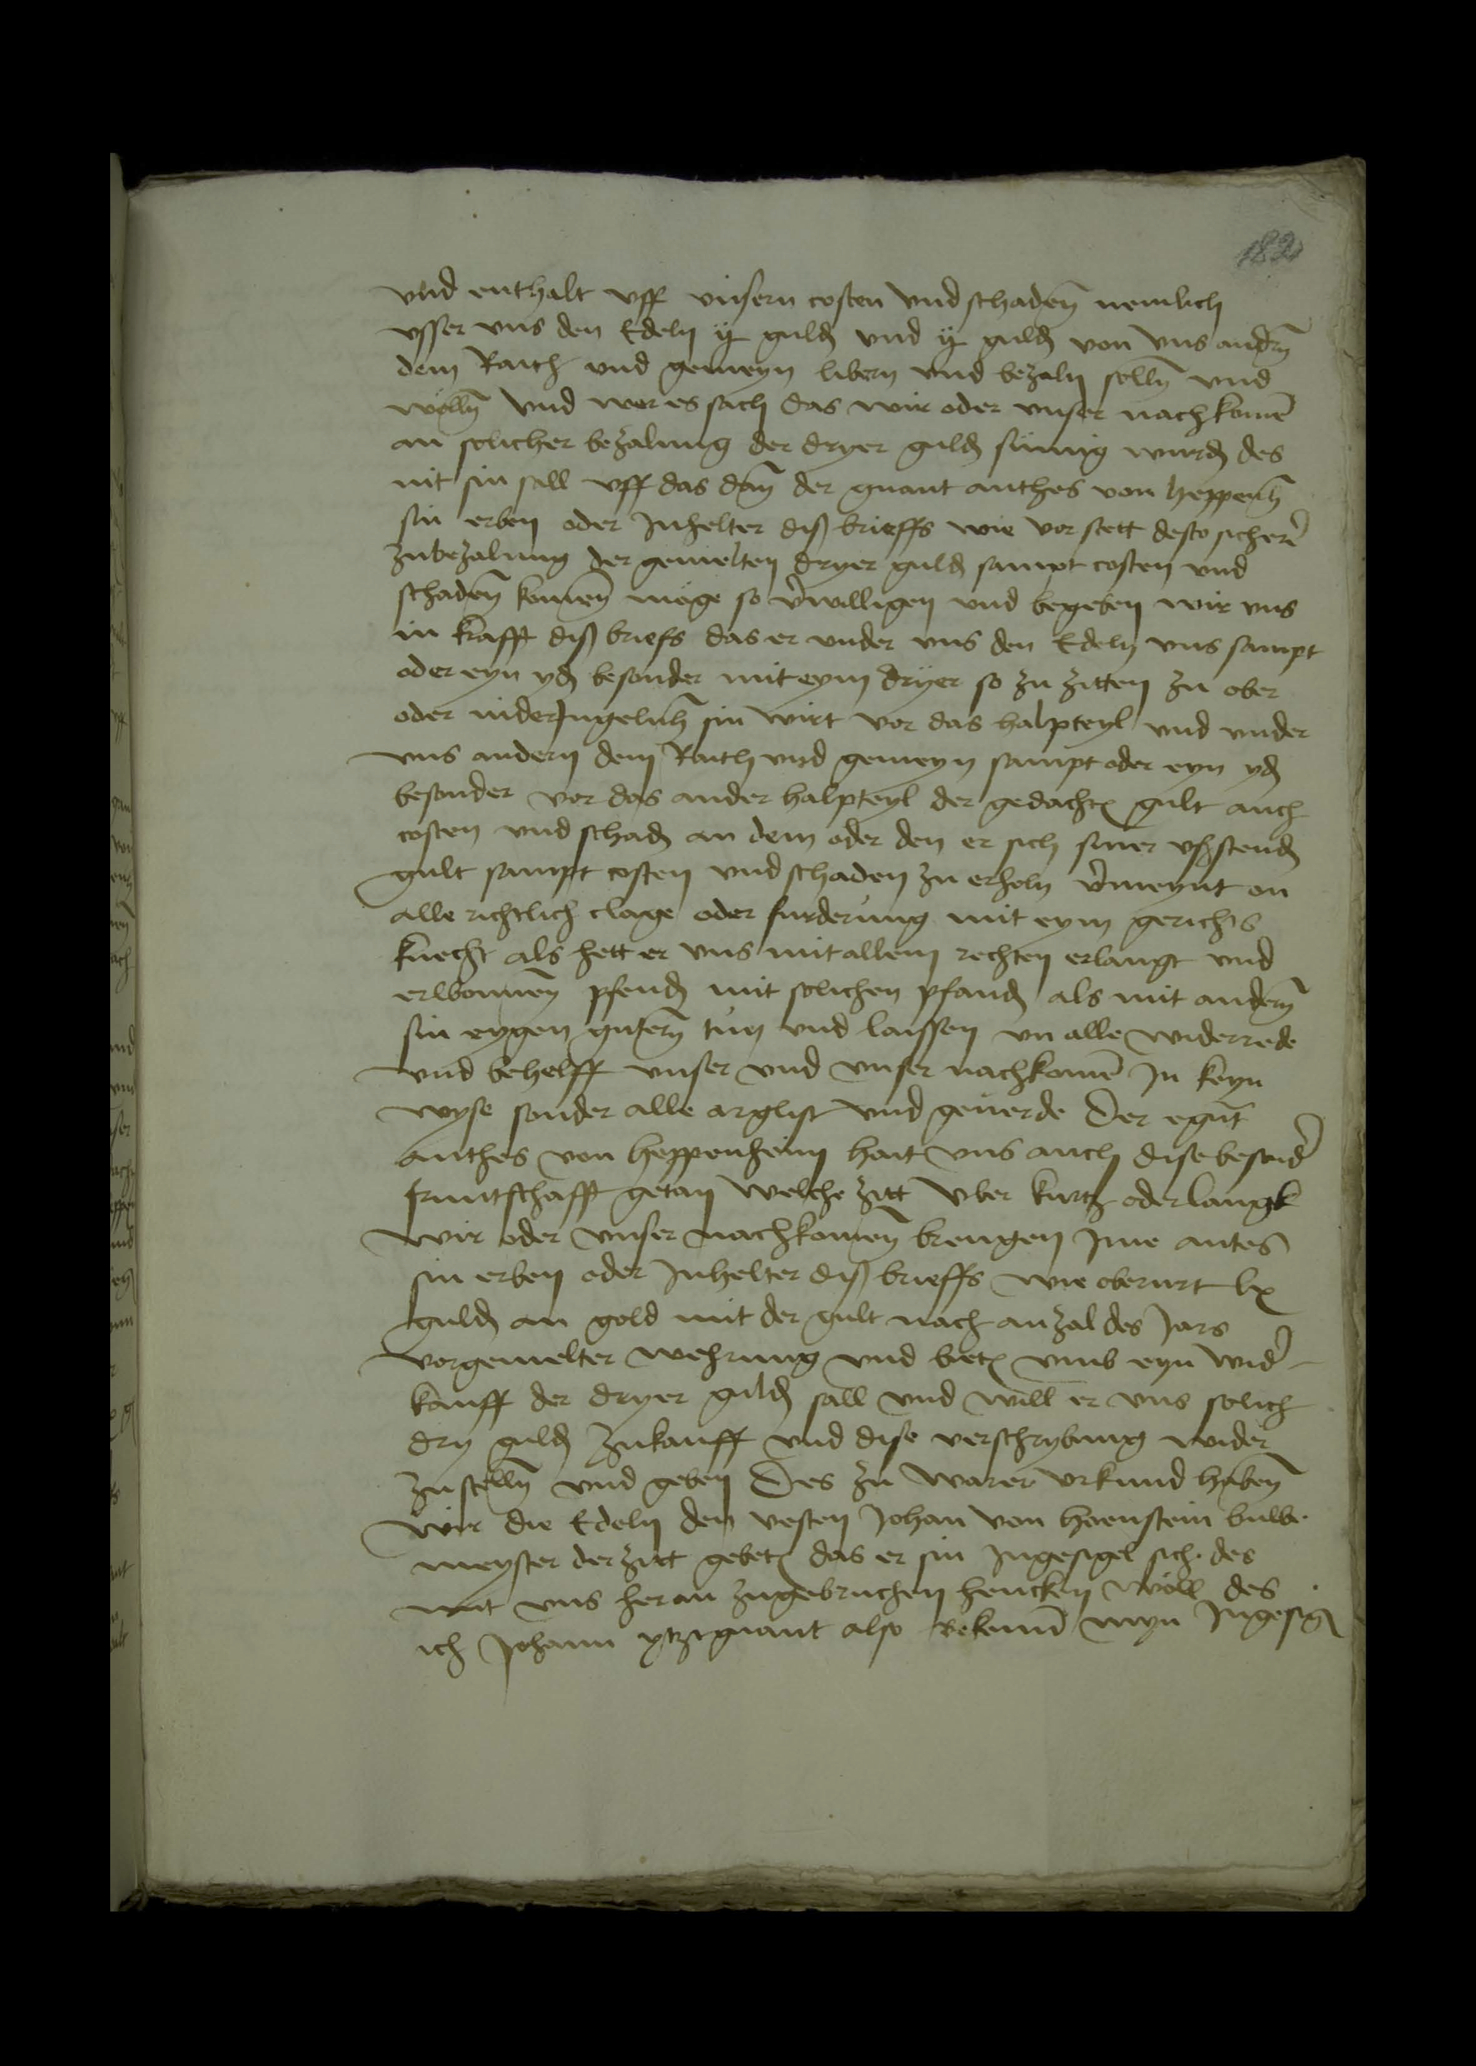 182
vnd enthalt vff vnsern costen vnd schaden nemlich
vsser vns den Edeln ij guld vnd ij guld von vns andern
dem Raith vnd gemeyn libern vnd bezaln sollen vnd
wollen Vnd wer es sach das wir oder vnser nachkomen
an solicher bezalung der dryer guld sumig wurd des
nit sin sall vff das dan der gnant anthes von heppenh
sin erben oder Inhelter diß brieffs wie vor stett desto sicherer
zubezalung der gemelten dryer guld sampt costen vnd
schaden komen moge so verwilligen vnd begeben wir vns
in krafft diß briefs das er vnder vns den Edeln vns sampt
oder eyn yd besonder mit eym dryer so zu zitten zu ober
oder nider Ingelnh sin wirt vor das halpteyl vnd vnder
vns andern dem Raith vnd gemeyn sampt oder eyn yd
besonder vor das ander halpteyl der gedacht gult auch
costen vnd schad an dem oder den er sich siner vßstend
gult sampt costen vnd schaden zu erholn vermeynt on
alle richtlich clage oder furderung mit eym gerichts
knecht als hett er vns mit allem rechten erlangt vnd
erwonnen pfend mit solichen pfand als mit andern
sin eygen gutern tun vnd laissen vn alle widerrede
vnd behelff vnser vnd vnser nachkomen In keyn
wyse sonder alle arglist vnd geuerde Der egnt
anthes von heppenheim hait vns auch dise besonder
fruntschafft getan welche zitt vber kurtz oder langk
wir oder vnser nachkomen brengen Ime antes
sin erben oder Inhelter diß brieffs wie oberurt lx
guld an gold mit der gult nach anzal des Jars
vorgemelter wehrung vnd biet vmb eyn wider
kauff der dryer guld sall vnd will er vns solich
dry guld zukauff vnd dise verschrybung wider
zustellen vnd geben Des zu warer vrkund haben
wir die Edeln den vesten Johan von haenstein buwe
meyster der zitt gebet das er sin Ingesigel sich des
mit vns heran zugebruchen hencken woll des
ich Johann ytztgnant also Bekennd myn Ingesig